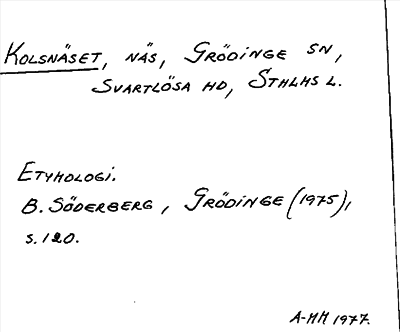 KOLSNÄSET, NÄS, GRÖDINGE SN,
SVARTLÖSA HD, STHLMS L.
ETYMOLOGI.
B. SÖDERBERG, GRÖDINGE (1975),
s. 120.
A-MM 1977.